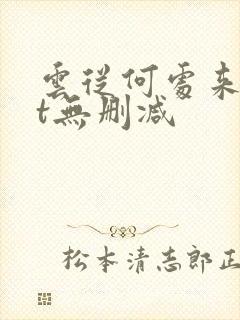 雲從何處来
t無删减
松本清志郎正